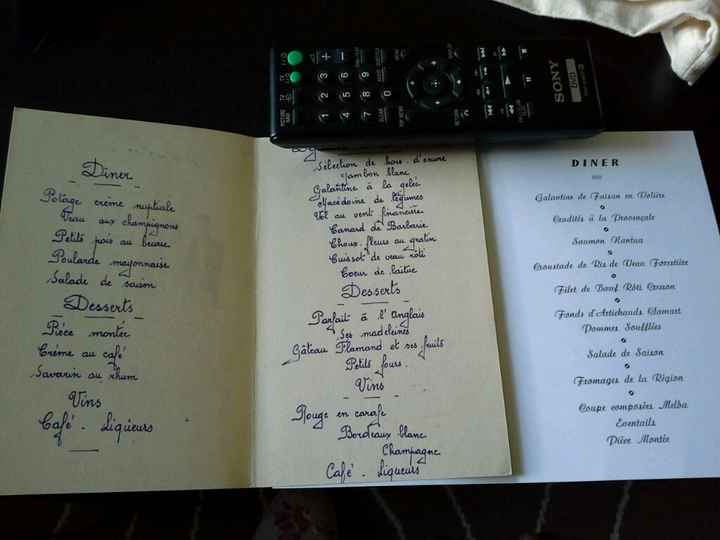 Dîner
Potage crème nuptiale
Veau aux champignons
Petits pois au beurre
Poularde mayonnaise
Salade de saison
Desserts
Pièce montée
Crème au café
Savarin au rhum
Vins
Café - Liqueurs
Sélection de hors-d'œuvre
Jambon blanc
Galantine à la gelée
Macédoine de légumes
Vol au vent financière
Canard de Barbarie
Choux-fleurs au gratin
Cuissot de veau rôti
Coeur de laitue
Desserts
Parfait à l'Anglais
Ses madeleines
Gâteau Flamand et ses fruits
Petits fours.
Vins
Rouge en carafe
Bordeaux blanc
Champagne
Café - Liqueurs
SONY
DVD
1 2 3
4 5 6
7 8 9
0
DINER
Galantine de Faisan en Volière
Crudités à la Provençale
Saumon Nantua
Croustade de Ris de Veau Forestière
Filet de Bœuf Rôti Cresson
Fonds d'Artichauds Clamart
Pommes Soufflées
Salade de Saison
Fromages de la Région
Coupe composées Melba
Eventails
Pièce Montée